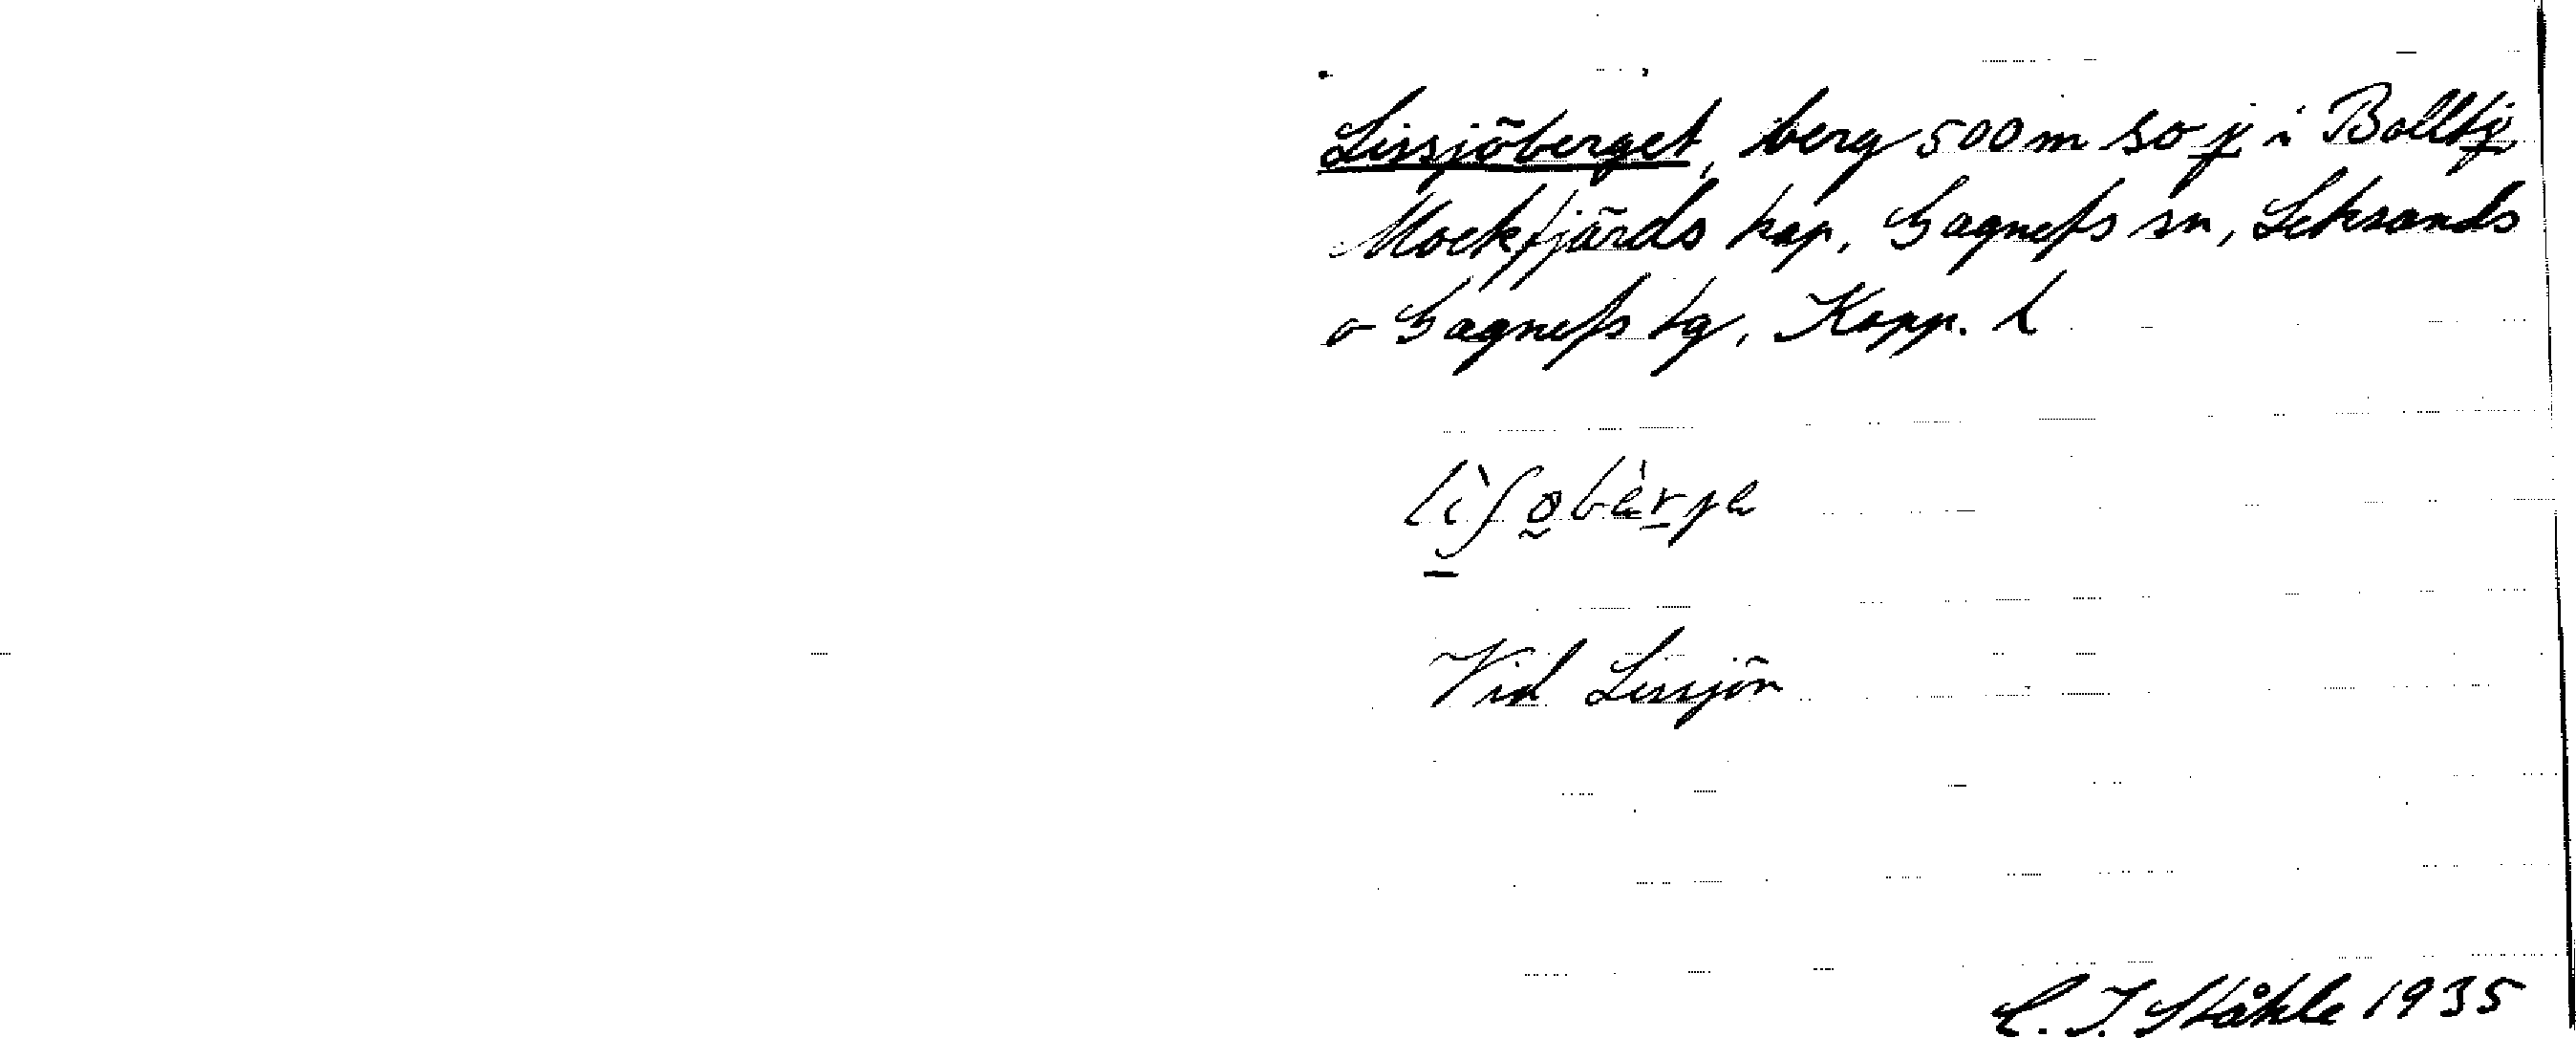 Lissjöberget, berg 500 m so y i Bolltj
Mockfjärds kap, Gagnefs sn, Leksands
o Gagnefs tg, Kopp. l
Vid Lissjön
C. I. Ståhle 1935